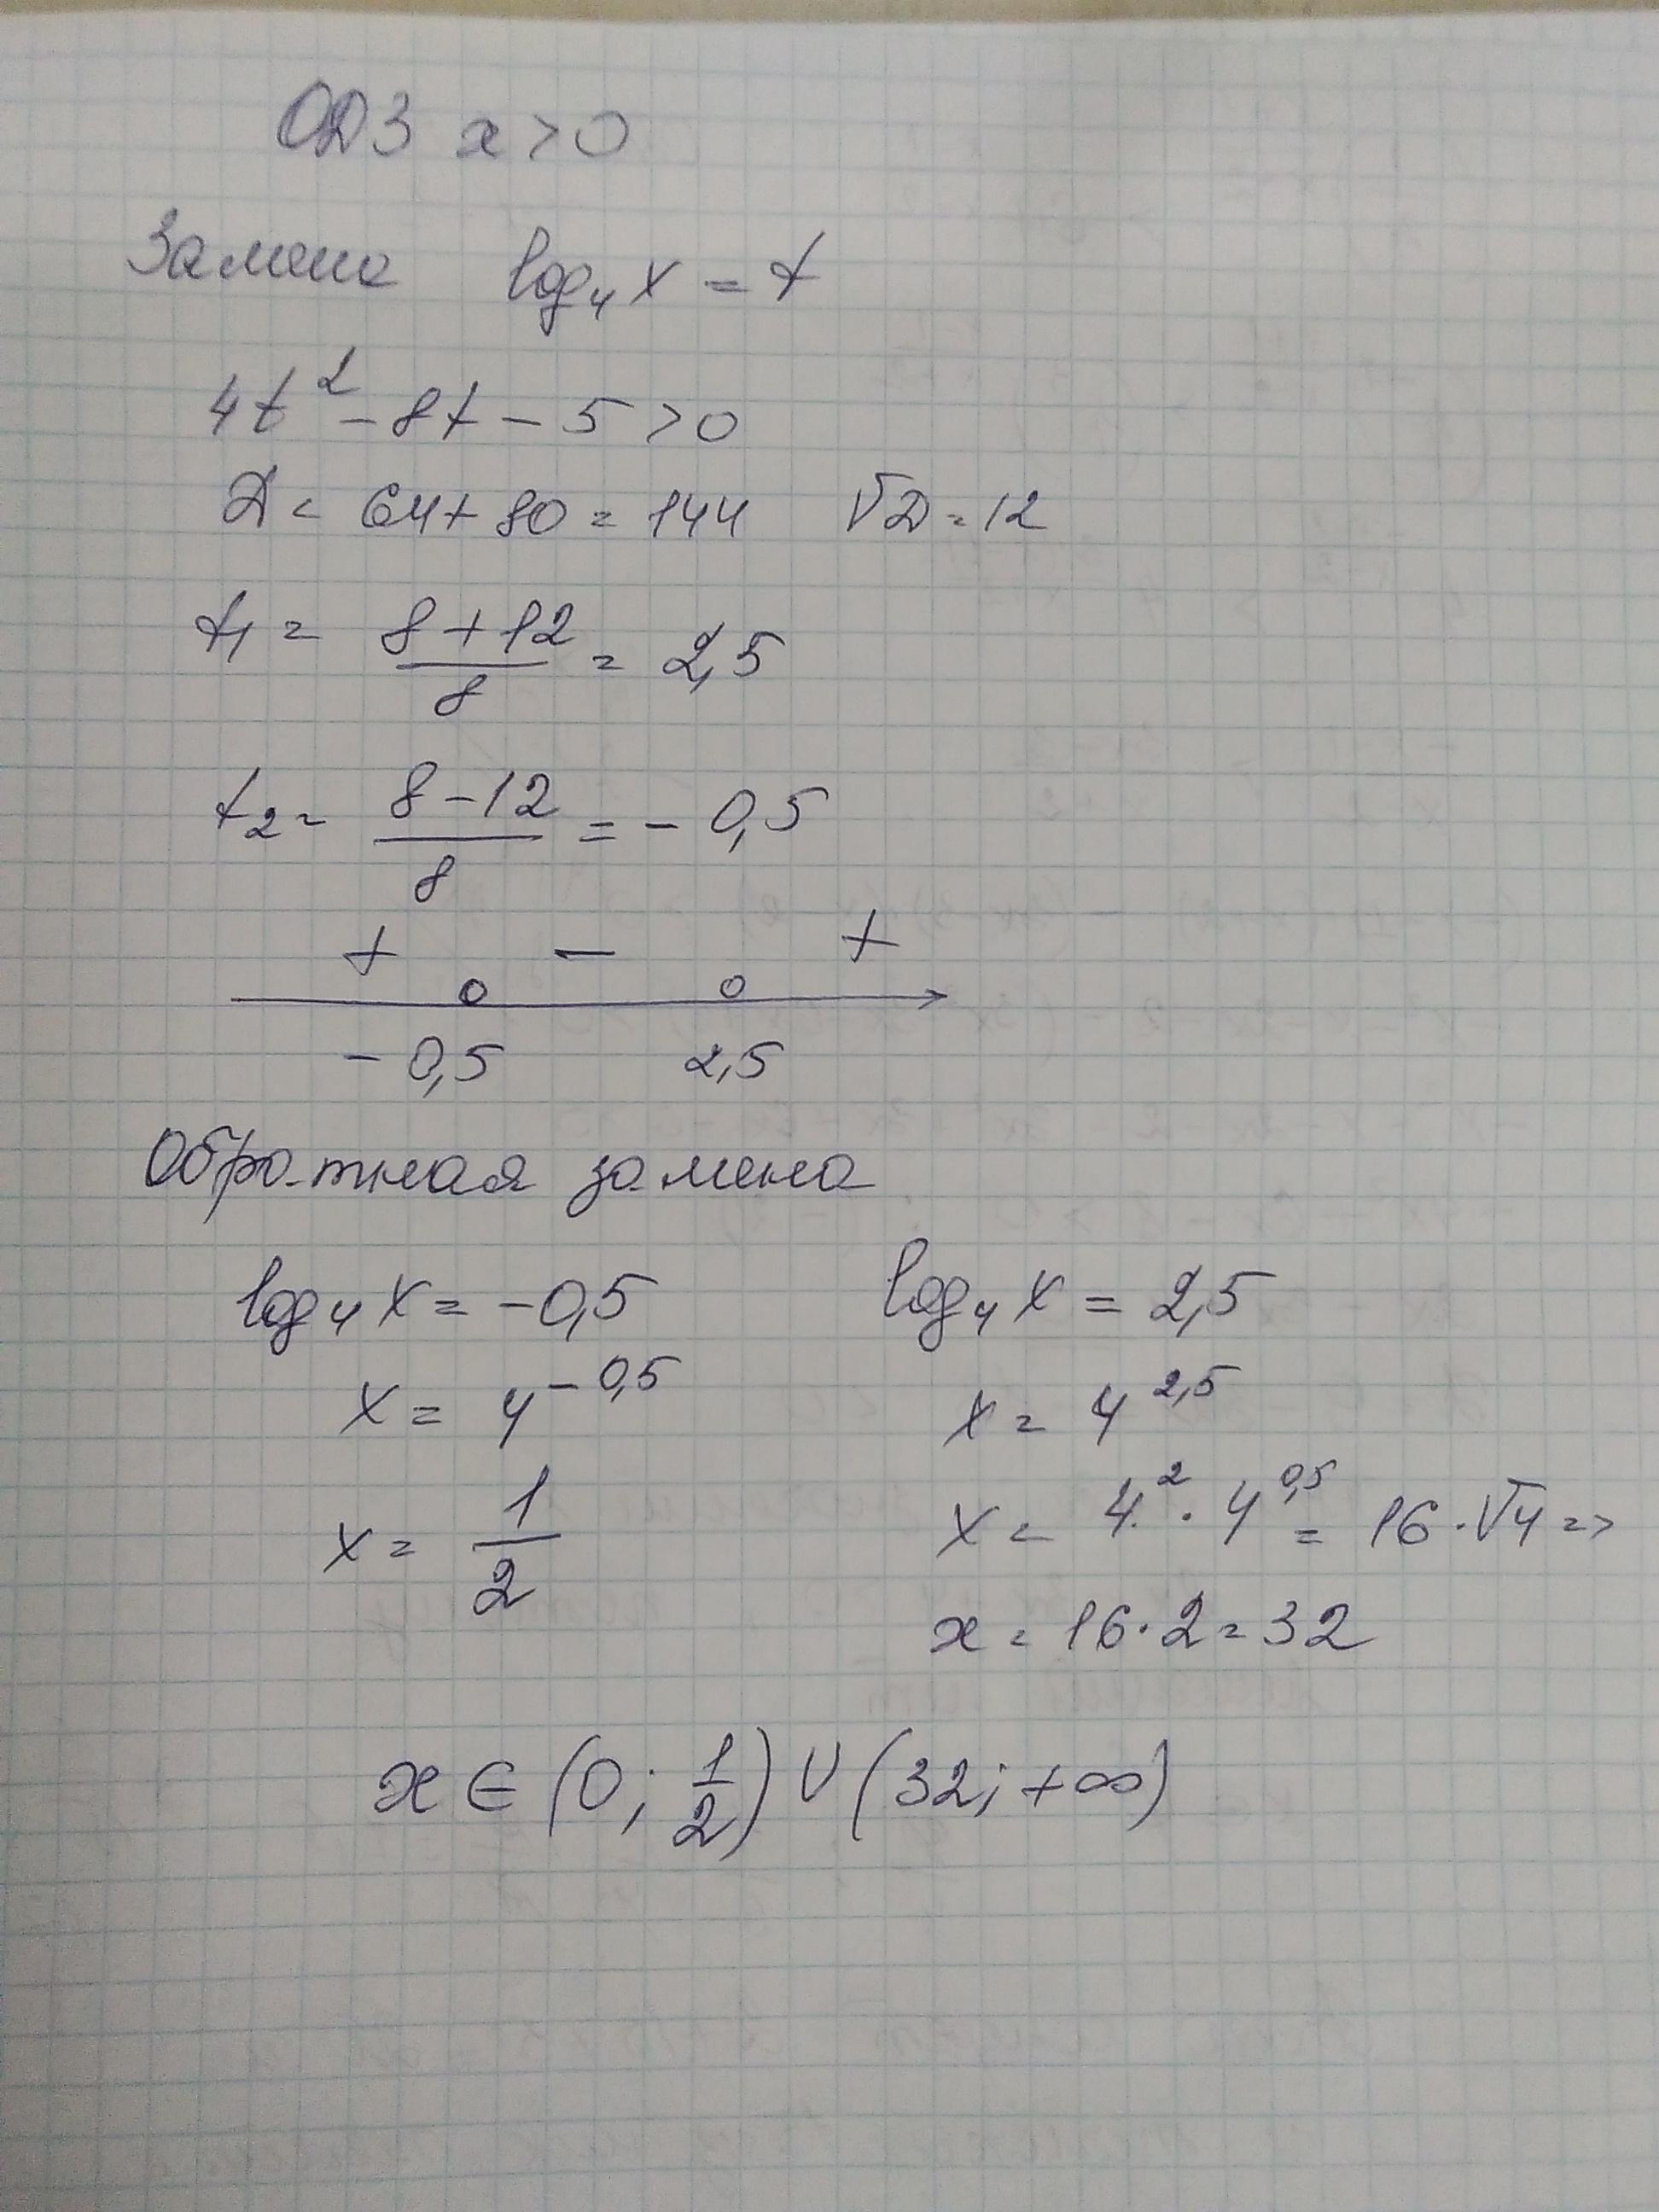 ОДЗ x > 0
Замена log₄ x = t
4t² - 8t - 5 > 0
D = 64 + 80 = 144 √D = 12
t₁ = (8 + 12)/8 = 2,5
t₂ = (8 - 12)/8 = - 0,5
+ - +
- 0,5 2,5
Обратная замена
log₄ x = -0,5 log₄ x = 2,5
x = 4^(-0,5) x = 4^(2,5)
x = 1/2 x = 4² · 4^(0,5) = 16 · √4 =>
x = 16 · 2 = 32
x ∈ (0; 1/2) ∪ (32; +∞)